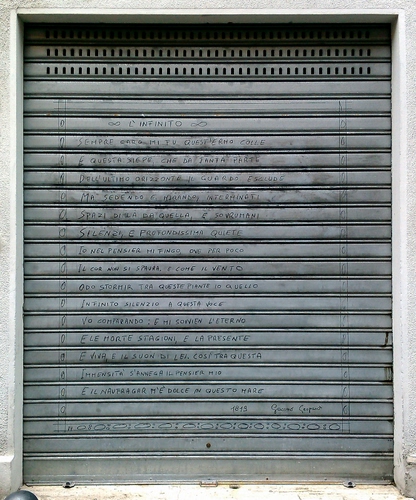 ∞ L'INFINITO ∞
SEMPRE CARO MI FU QUEST'ERMO COLLE
E QUESTA SIEPE CHE DA TANTA PARTE
DELL'ULTIMO ORIZZONTE IL GUARDO ESCLUDE
MA SEDENDO E MIRANDO, INTERMINATI
SPAZI DI LÀ DA QUELLA, E SOVRUMANI
SILENZI, E PROFONDISSIMA QUIETE
IO NEL PENSIER MI FINGO, OVE PER POCO
IL COR NON SI SPAURA. E COME IL VENTO
ODO STORMIR TRA QUESTE PIANTE IO QUELLO
INFINITO SILENZIO A QUESTA VOCE
VO COMPARANDO: E MI SOVVIEN L'ETERNO
E LE MORTE STAGIONI, E LA PRESENTE
E VIVA, E IL SUON DI LEI. COSÌ TRA QUESTA
IMMENSITÀ S'ANNEGA IL PENSIER MIO
E IL NAUFRAGAR M'È DOLCE IN QUESTO MARE
1819 Giacomo Leopardi